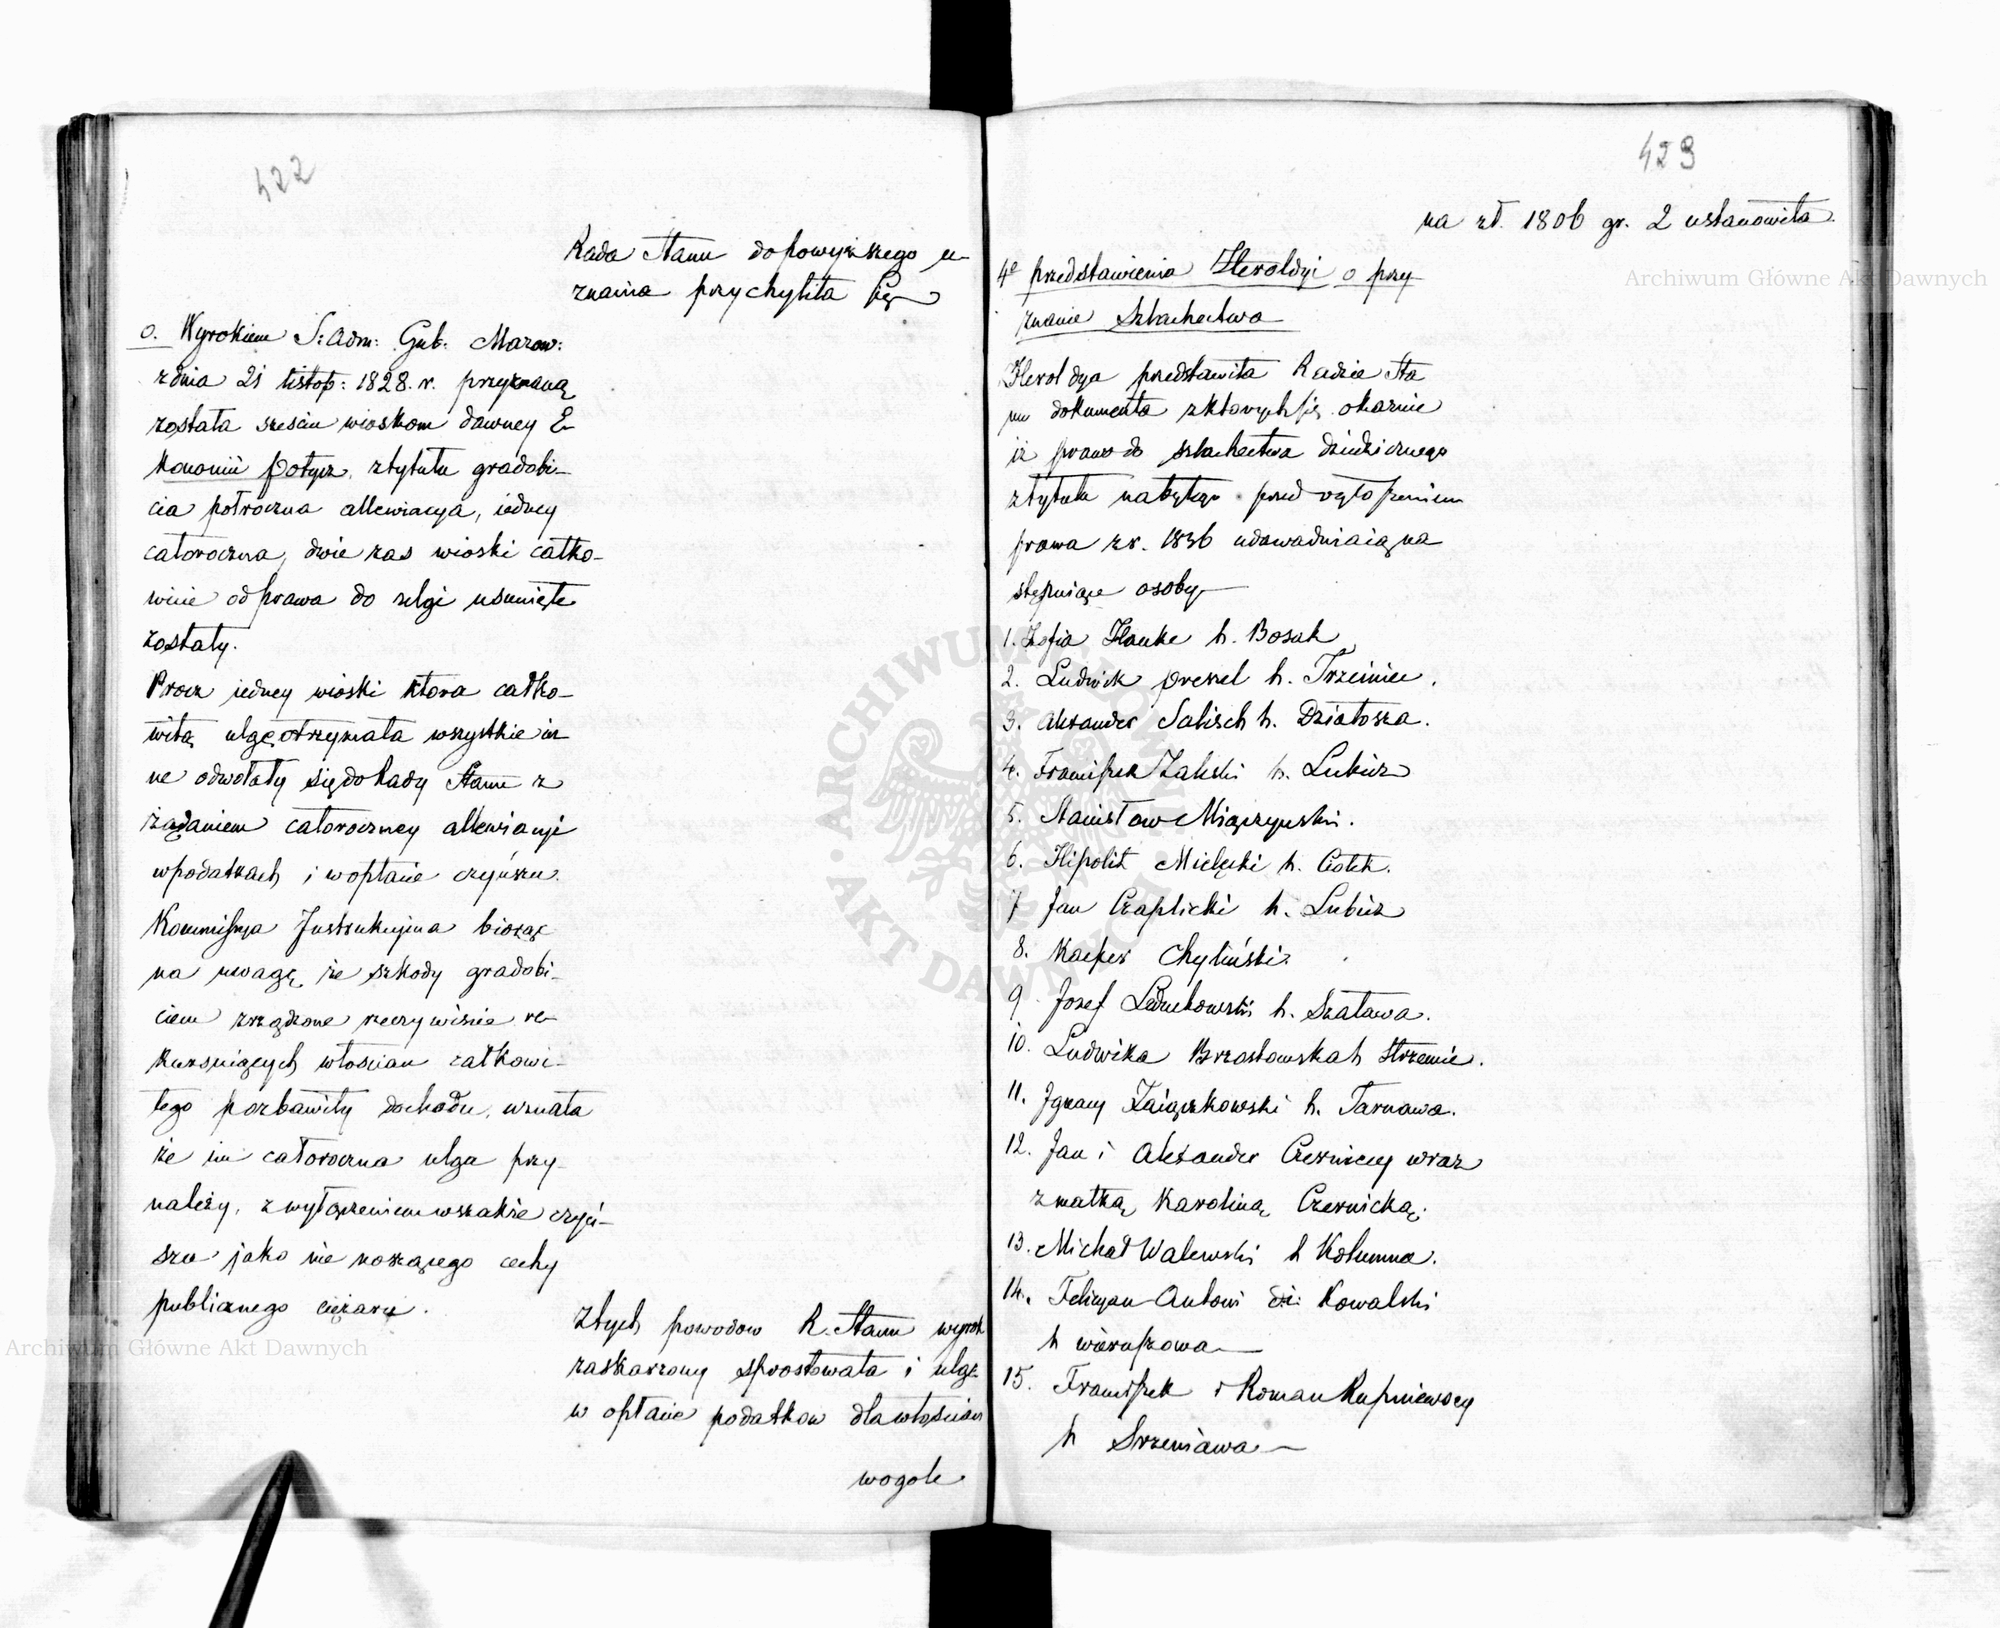 422
Rada Stanu do powyższego u-
znania przychyliła się
o. Wyrokiem S: Adm: Gub: Mazow:
z dnia 21 listop: 1828. r. przyznaną
została sześciu wioskom dawney E-
konomii z tytułu gradobi-
cia półroczna allewiacya, iedney
całoroczna, dwie zas wioski całko-
wicie od prawa do ulgi usunięte
zostały.
Procz iedney wioski ktora całko-
witą ulgę otrzymała wszystkie in
ne odwołały się do Rady Stanu z
żądaniem całoroczney allewiacyi
w podatkach i w opłacie czynszu.
Kommissya Instrukcyina biorąc
na uwagę, że szkody gradobi-
ciem zrządzone rzeczywiscie re-
kursuiących włoscian całkowi-
tego pozbawiły dochodu, uznała
że im całoroczna ulga przy-
należy, z wyłączeniem wszakże czyn-
szu jako nie noszącego cechy
publicznego ciężaru.
Z tych powodow R. Stanu wyrok
zaskarzony sprostowała i ulgę
w opłacie podatkow dla włoscian
wogole
423
na zł. 1806 gr. 2 ustanowiła.
4e przedstawienia Heroldyi o przy
znanie Szlachectwa
Heroldya przedstawiła Radzie Sta
nu dokumenta z ktorych się okazuie
iż prawo do szlachectwa dziedzicznego
z tytułu nabytego przed ogłoszeniem
prawa z r. 1836 udowadniaią na
stępuiące osoby
1. Zofia Hauke h. Bosak
2. Ludwik h. Trzciniec.
3. Alexander Salisch h. Działosza.
4. Franciszek Zaleski h. Lubicz
5. Stanisław Miączynski.
6. Hipolit Mielęcki h. Ciołek.
7 Jan Czaplicki h. Lubicz
8. Kacper Chyliński.
9. Jozef Leduchowski h. Szaława.
10. Ludwika Brzostowska h Strzemie.
11. Ignacy Zaiączkowski h. Tarnawa.
12. Jan i Alexander Czerniccy wraz
z matką Karoliną Czernicką.
13. Michał Walewski h Kolumna.
14. Felicyan Antoni Kowalski
h wieruszowa
15. Franciszek i Roman Rupniewscy
h Srzeniawa
Archiwum Główne Akt Dawnych
Archiwum Główne Akt Dawnych